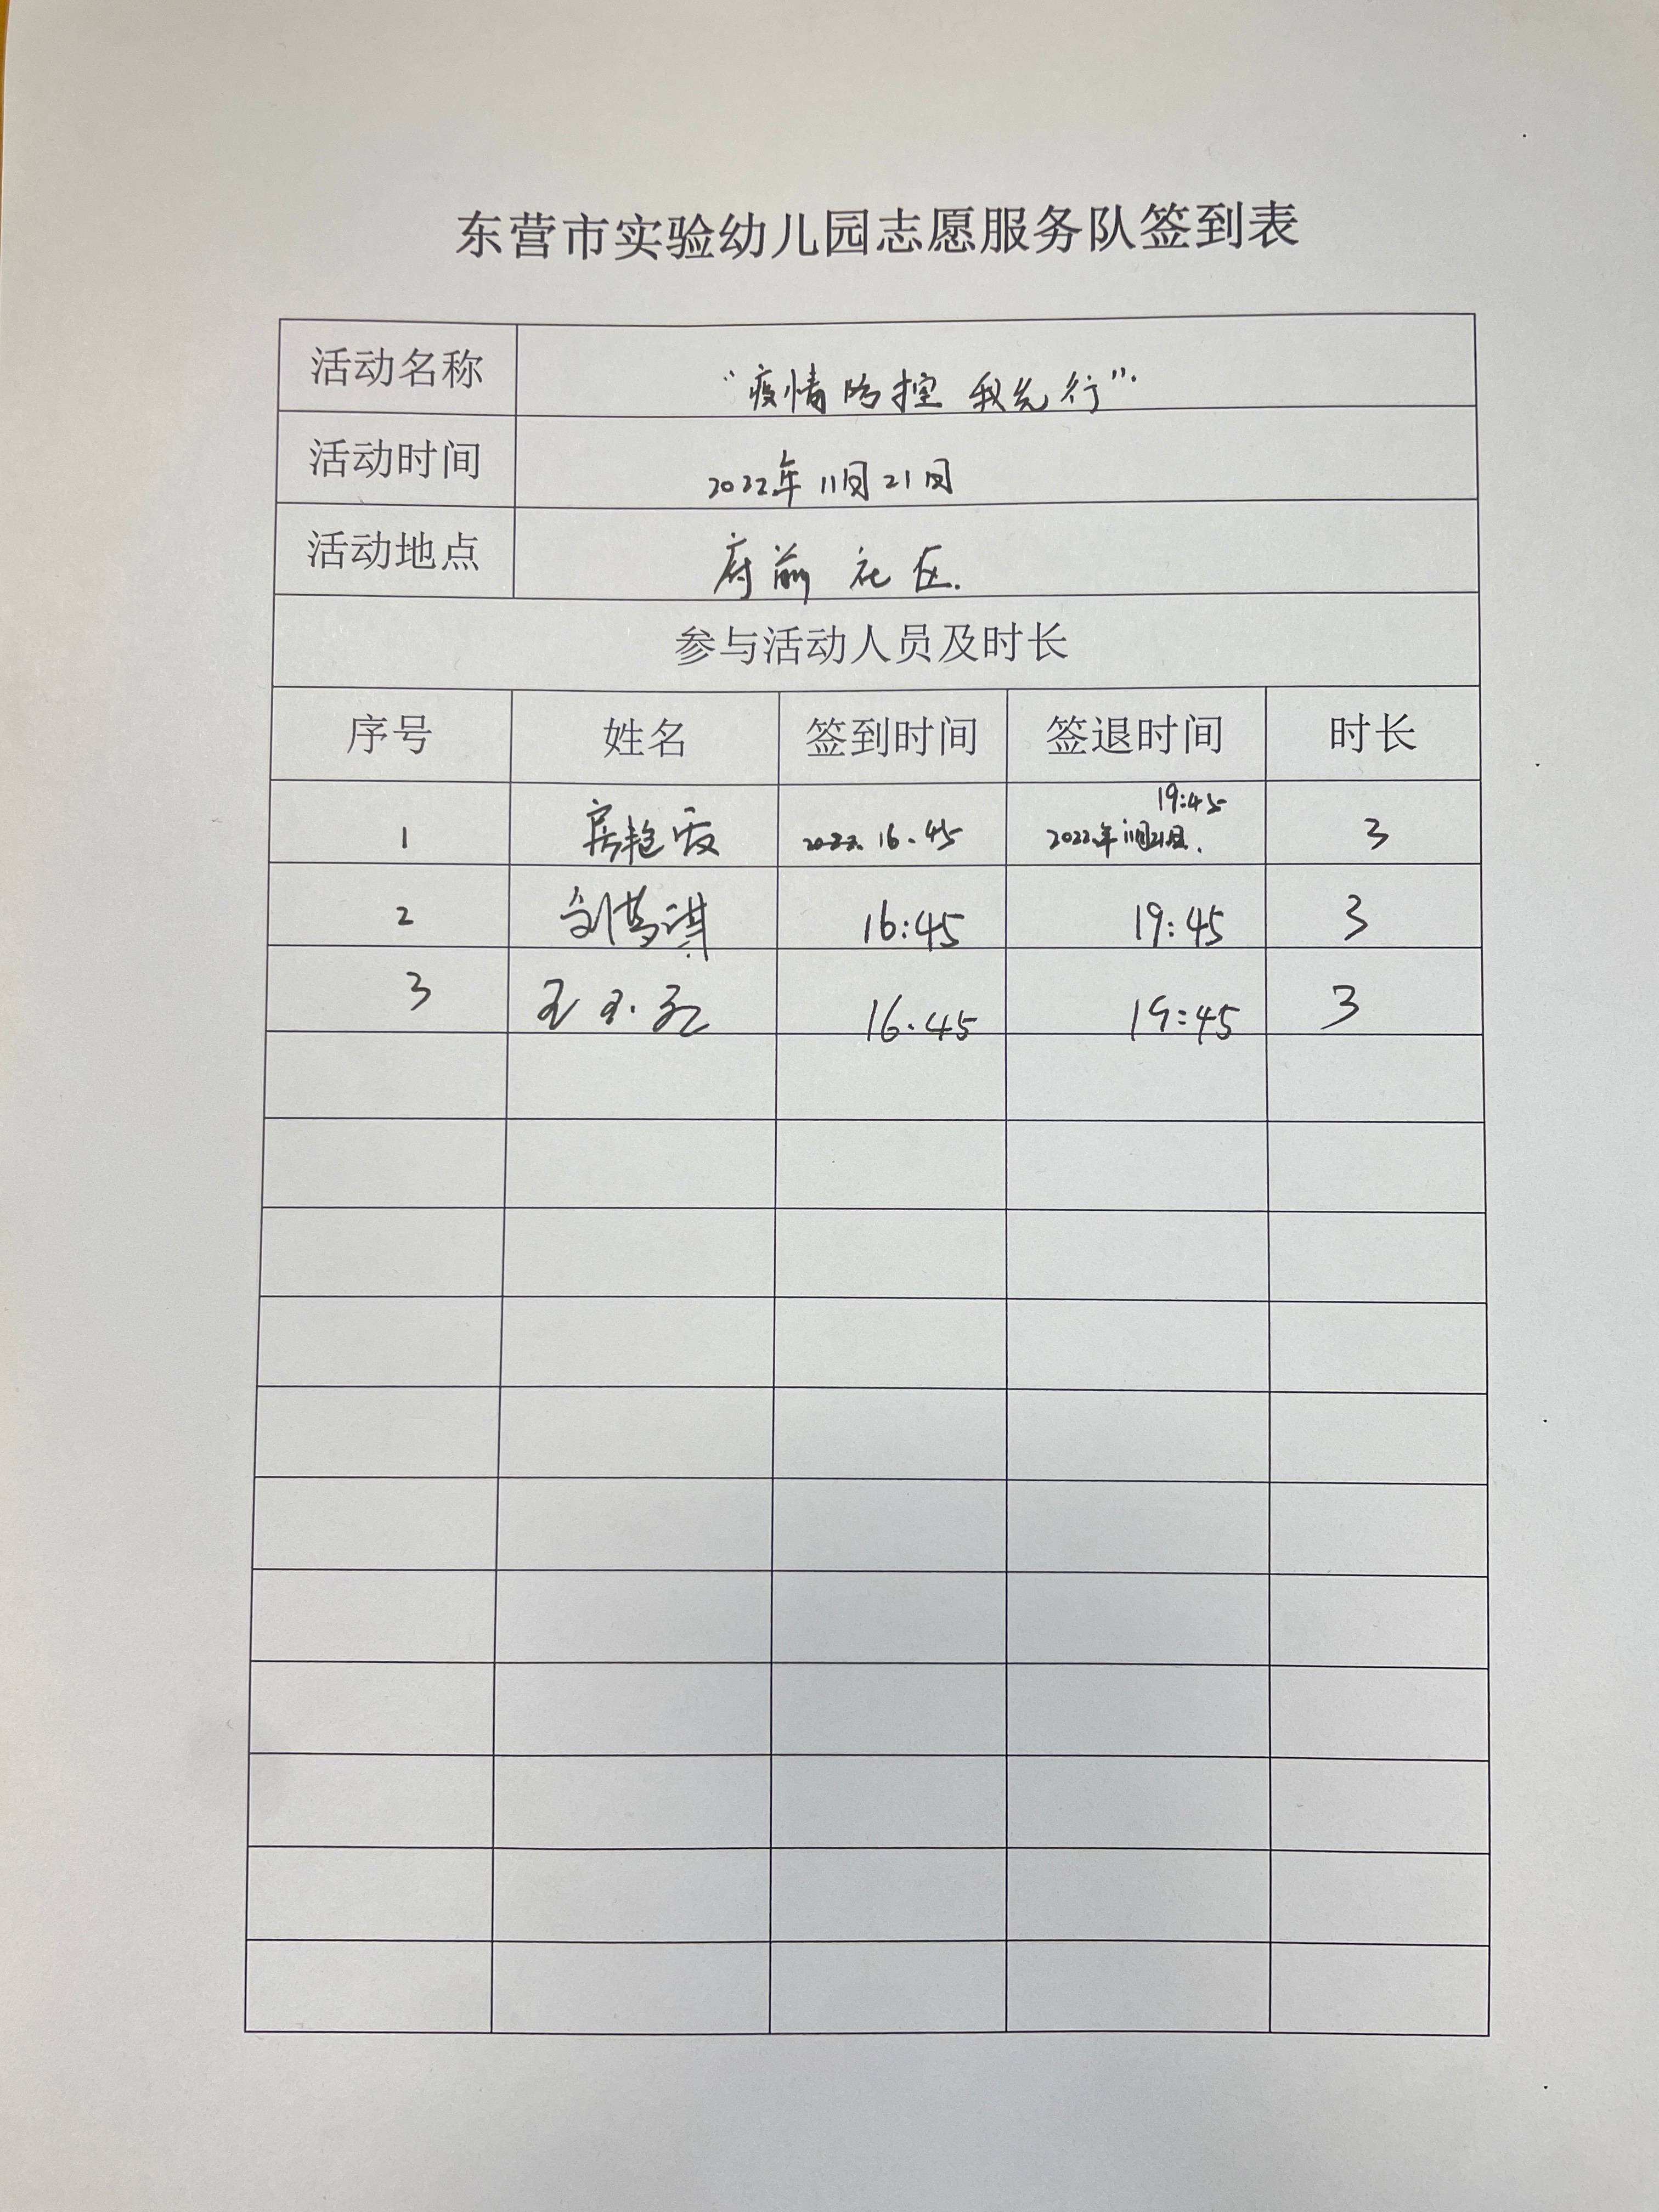 东营市实验幼儿园志愿服务队签到表
活动名称 “疫情防控 我先行”.
活动时间 2022年11月21日
活动地点 府前社区.
参与活动人员及时长
序号 姓名 签到时间 签退时间 时长
19:45
1 房艳霞 16.45 2022年11月21日. 3
2 刘梦淇 16:45 19:45 3
3 16.45 19:45 3